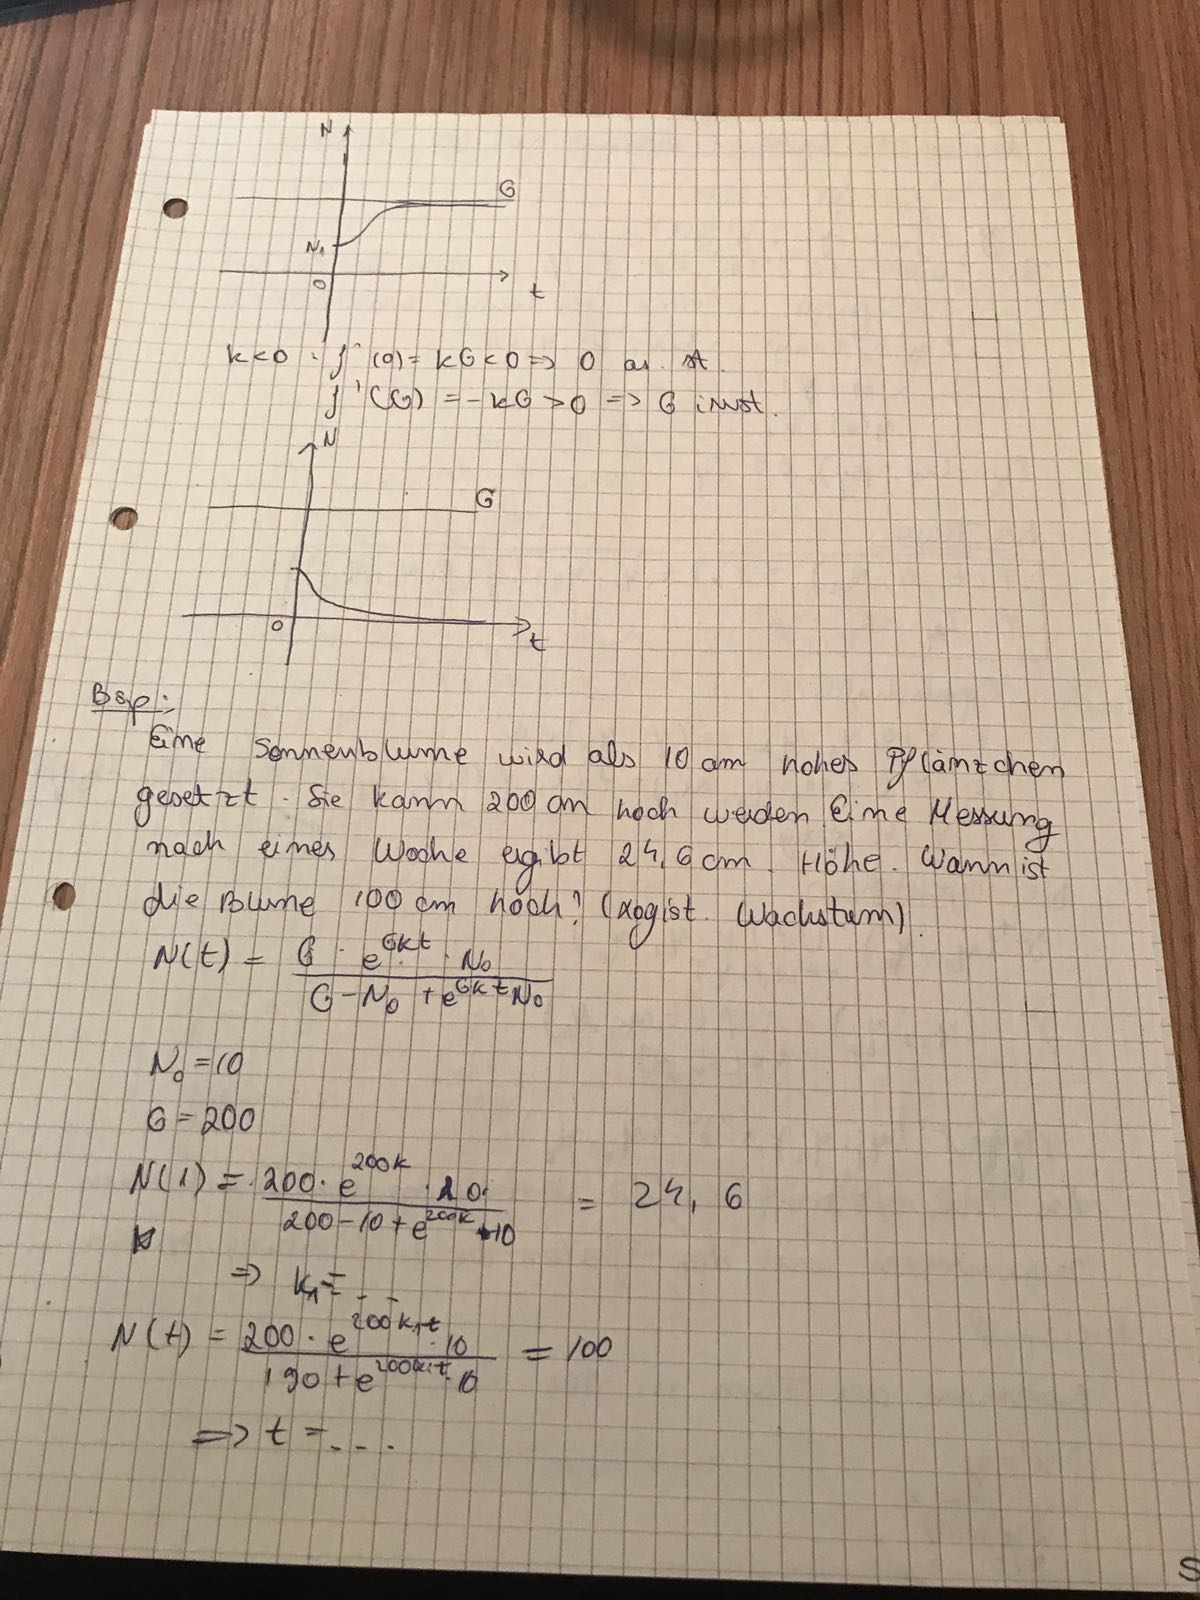 N
G
N₁
0
t
k<0: f'(0) = kG<0 => 0 as. st.
f'(G) = -kG >0 => G inst.
N
G
0
t
Bsp.:
Eine Sonnenblume wird als 10 cm hohes Pflänzchen
gesetzt. Sie kann 200 cm hoch werden Eine Messung
nach einer Woche ergibt 24,6 cm. Höhe. Wann ist
die Blume 100 cm hoch? (Logist. Wachstum).
N(t) = (G · e^(Gkt) · N₀) / (G - N₀ + e^(Gkt) N₀)
N₀ = 10
G = 200
N(1) = (200 · e^(200k) · 10) / (200 - 10 + e^(200k) · 10) = 24,6
=> k₁ = ...
N(t) = (200 · e^(200k₁t) · 10) / (190 + e^(200k₁t) · 10) = 100
=> t = ...
S